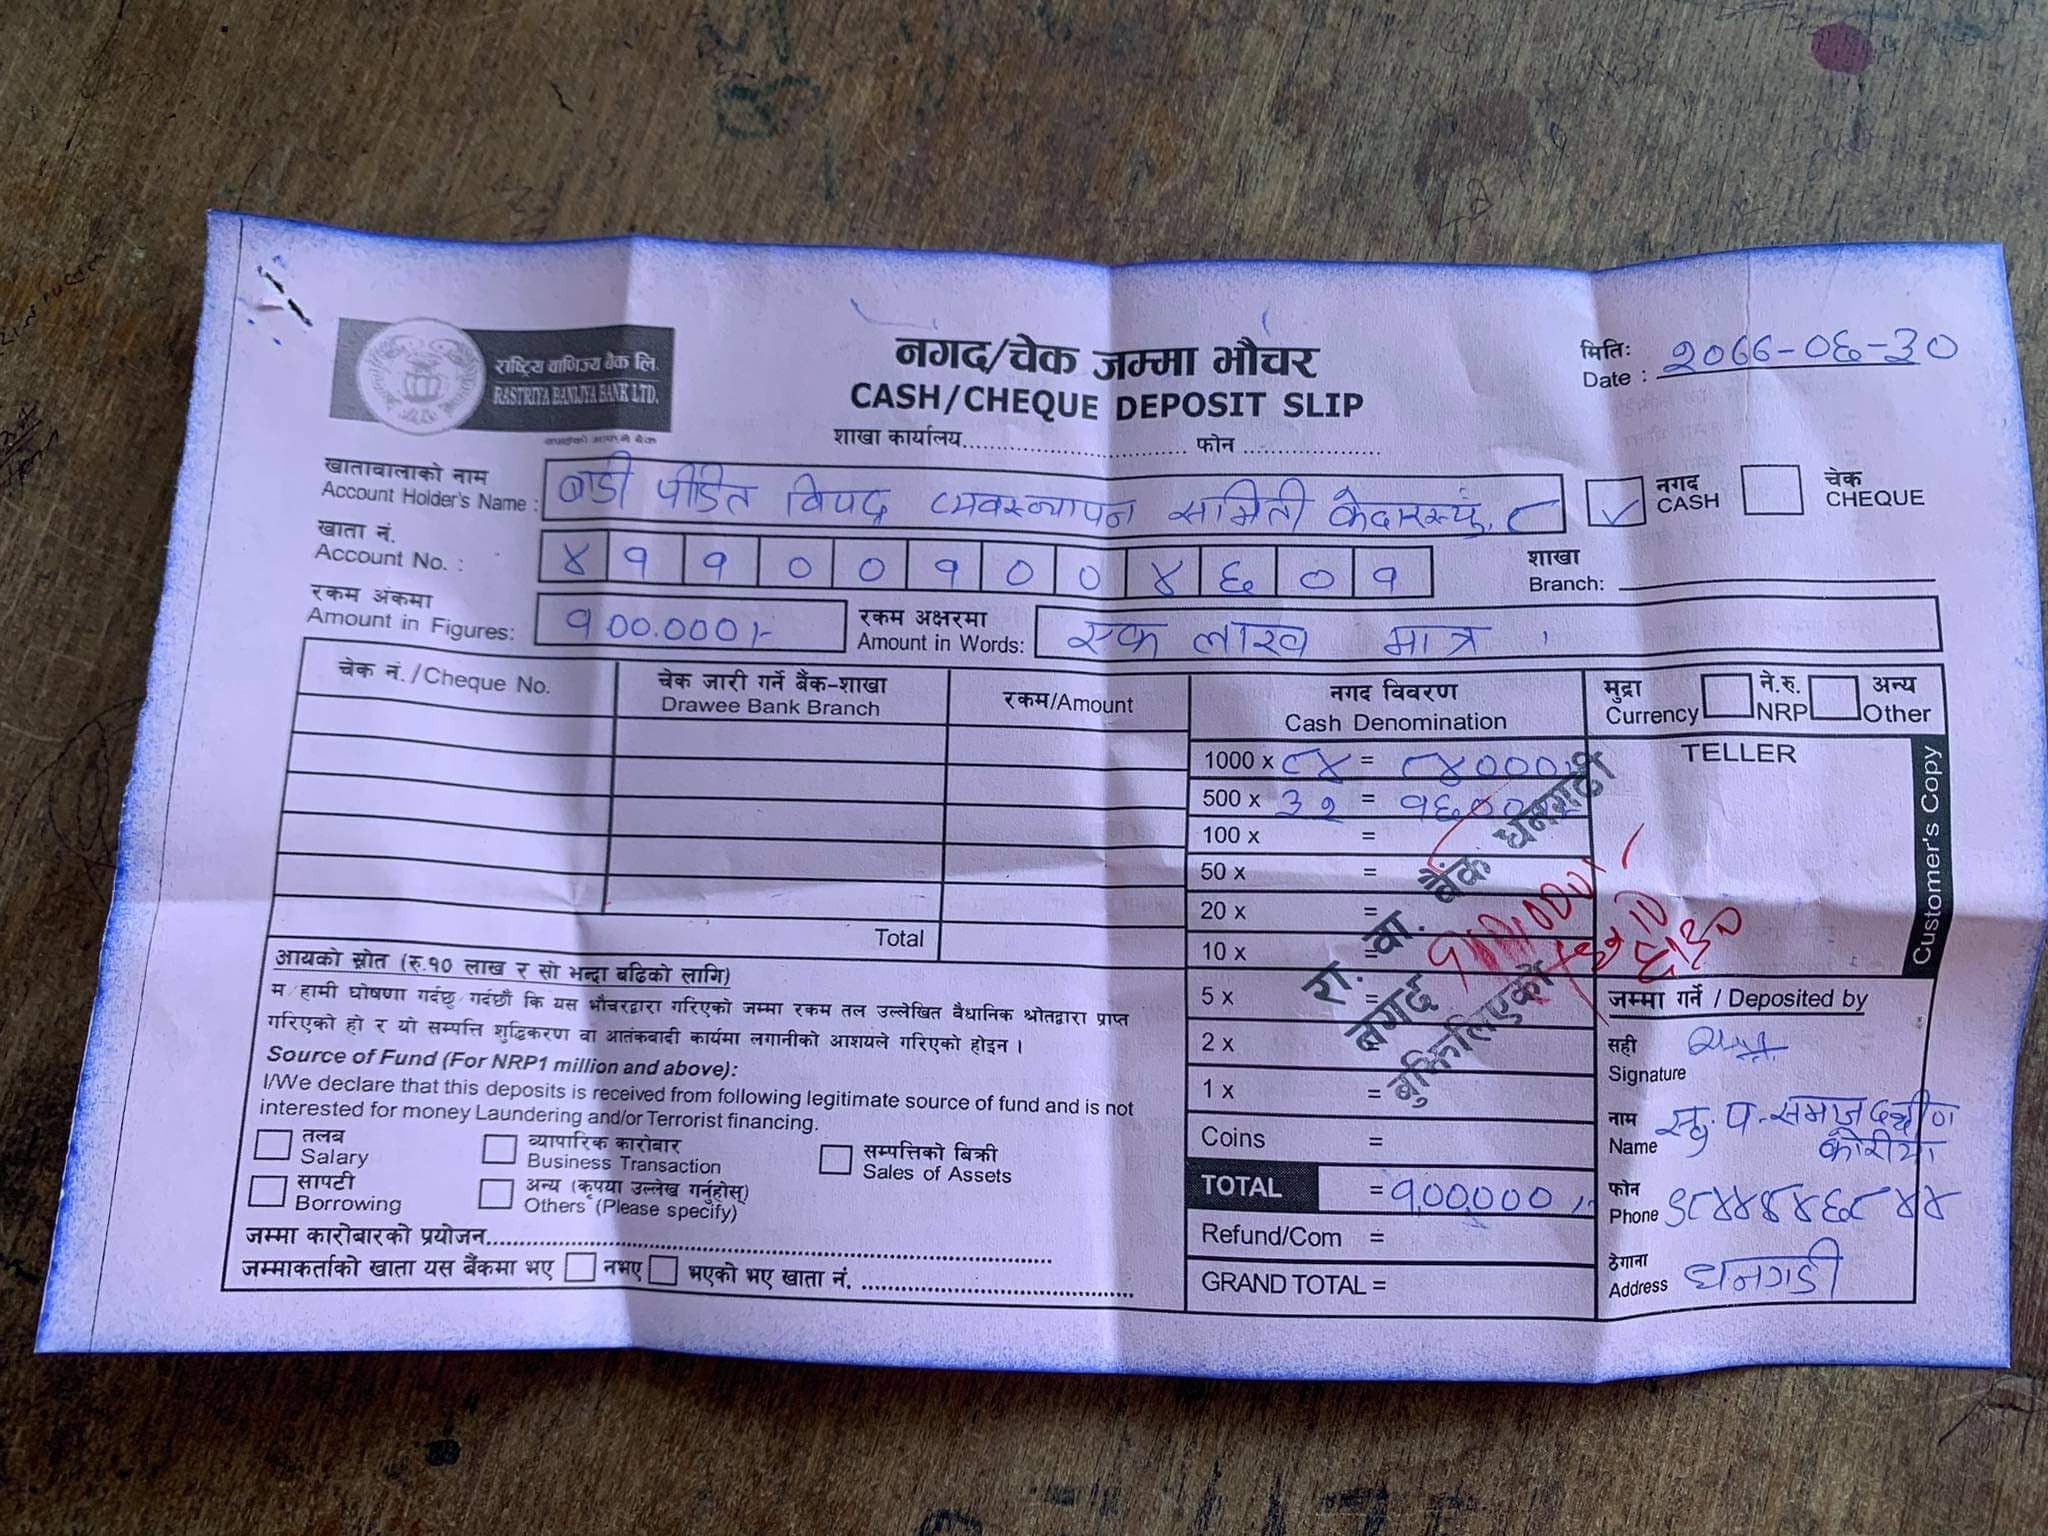 राष्ट्रिय वाणिज्य बैंक लि.
RASTRIYA BANIJYA BANK LTD.
तपाईको आफ्नै बैंक
नगद/चेक जम्मा भौचर
CASH/CHEQUE DEPOSIT SLIP
शाखा कार्यालय.................................. फोन .....................
मितिः
Date : २०७७-०६-३०
खातावालाको नाम
Account Holder's Name : बाडी पीडित विपद् व्यवस्थापन समिती केदारस्यूं, ८
नगद
CASH
चेक
CHEQUE
खाता नं.
Account No. : ४ १ १ ० ० १ ० ० ४ ६ ० १
शाखा
Branch:
रकम अंकमा
Amount in Figures: १,००,०००।-
रकम अक्षरमा
Amount in Words: एक लाख मात्र ।
चेक नं./Cheque No.
चेक जारी गर्ने बैंक-शाखा
Drawee Bank Branch
रकम/Amount
Total
नगद विवरण
Cash Denomination
1000 x ८४ = ८४०००।-
500 x ३२ = १६०००।-
100 x =
50 x =
20 x =
10 x =
5 x =
2 x =
1 x =
Coins =
TOTAL = १,००,०००।-
Refund/Com =
GRAND TOTAL =
रा. वा. बैंक धनगढी
नगद
बुझिलिएको
मुद्रा
Currency
ने.रु.
NRP
अन्य
Other
TELLER
Customer's Copy
आयको स्रोत (रु.१० लाख र सो भन्दा बढिको लागि)
म/हामी घोषणा गर्दछु/गर्दछौं कि यस भौचरद्वारा गरिएको जम्मा रकम तल उल्लेखित वैधानिक श्रोतद्वारा प्राप्त
गरिएको हो र यो सम्पत्ति शुद्धिकरण वा आतंकवादी कार्यमा लगानीको आशयले गरिएको होइन ।
Source of Fund (For NRP1 million and above):
I/We declare that this deposits is received from following legitimate source of fund and is not
interested for money Laundering and/or Terrorist financing.
तलब
Salary
व्यापारिक कारोबार
Business Transaction
सम्पत्तिको बिक्री
Sales of Assets
सापटी
Borrowing
अन्य (कृपया उल्लेख गर्नुहोस्)
Others (Please specify)
जम्मा कारोबारको प्रयोजन..................................................
जम्माकर्ताको खाता यस बैंकमा भए नभए भएको भए खाता नं. ........................
जम्मा गर्ने / Deposited by
सही
Signature
नाम
Name सु. प. समाज दक्षीण
कोरीया
फोन
Phone ९८४४४४६८४४
ठेगाना
Address धनगडी